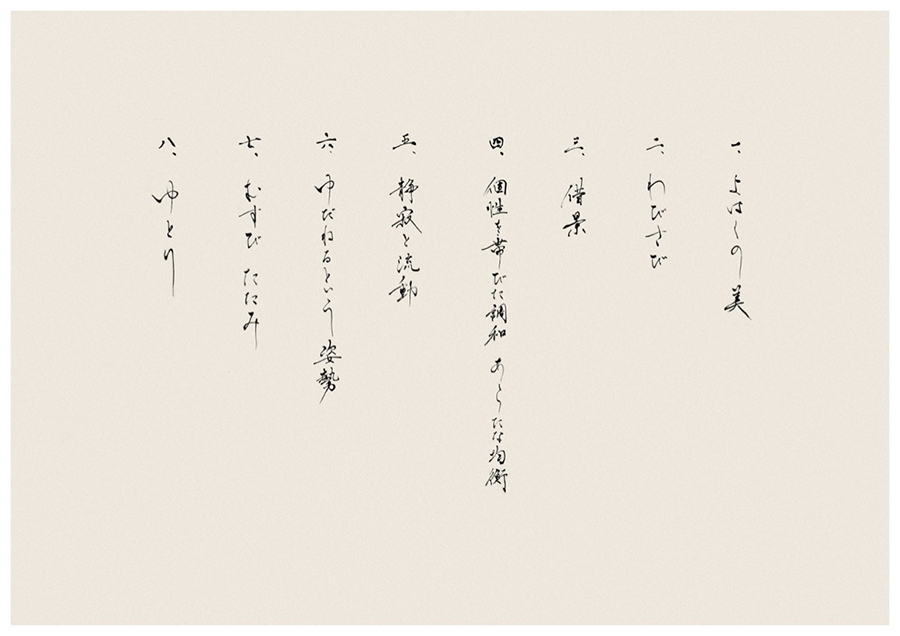 一、よはくの美
二、わびさび
三、借景
四、個性を帯びた調和 あらたな均衡
五、静寂と流動
六、ゆだねるという姿勢
七、むすび たたみ
八、ゆとり